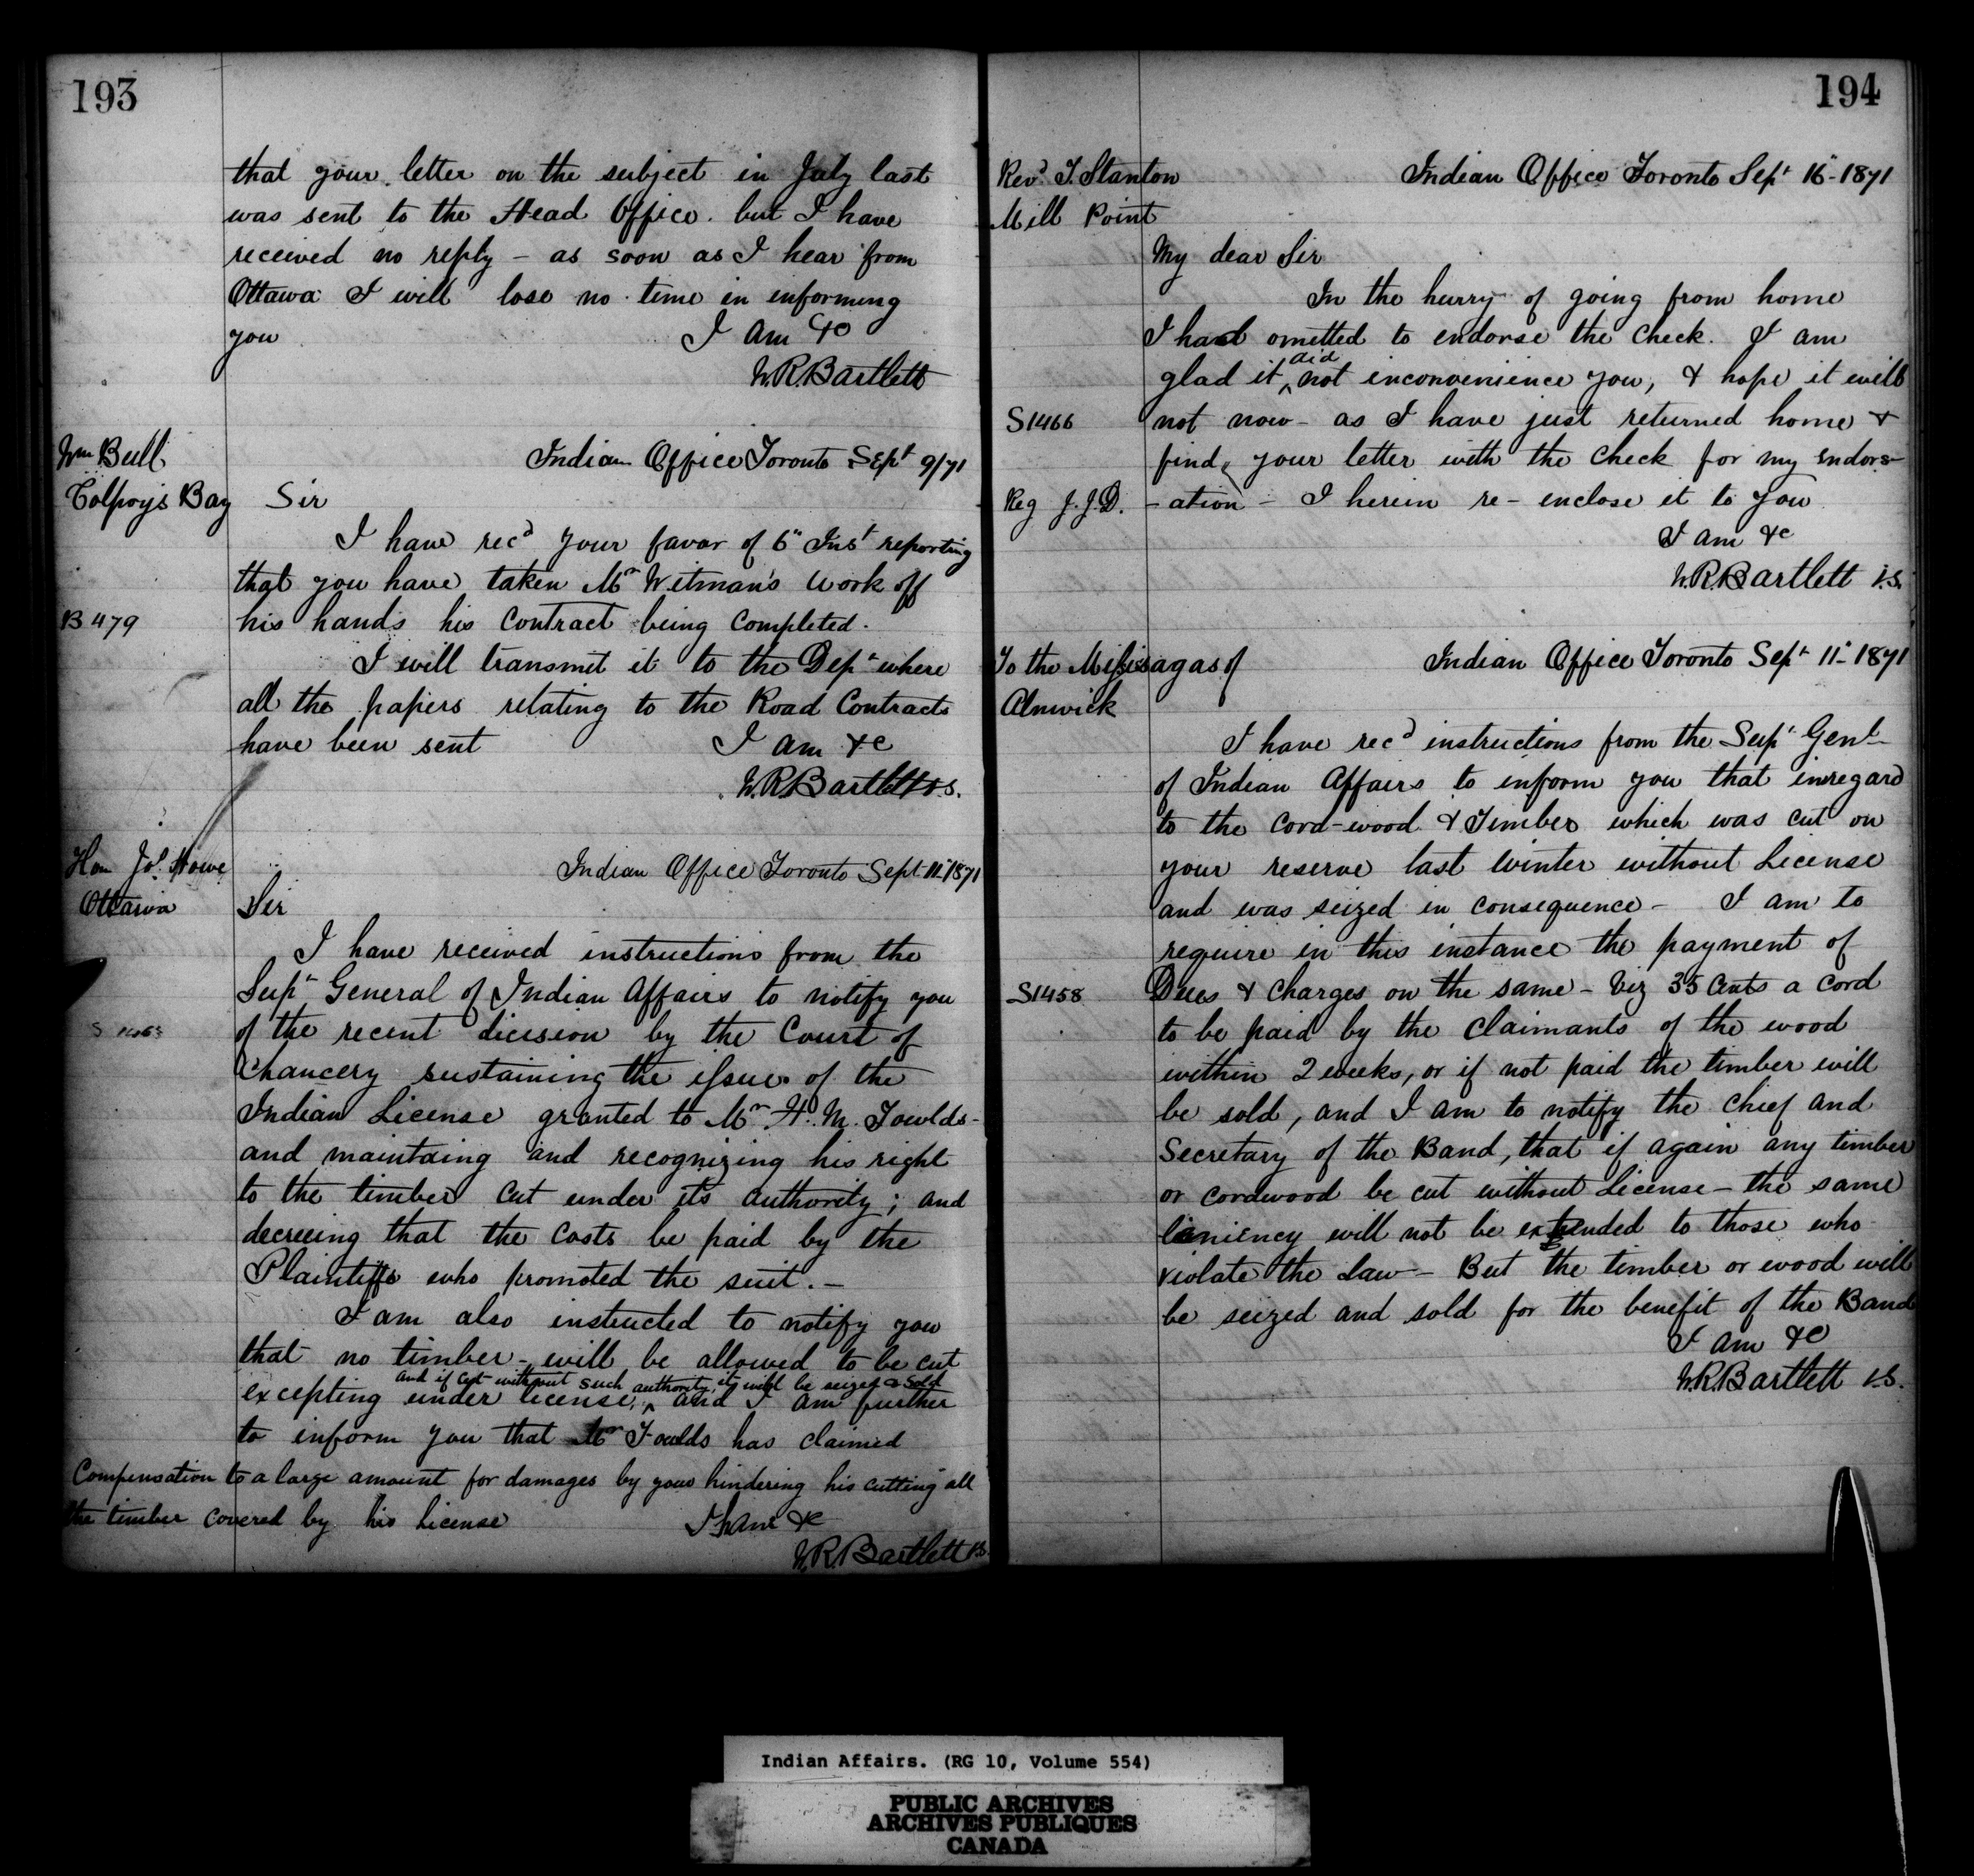 193
that your letter on the subject in July last
was sent to the Head Office. but I have
received no reply – as soon as I hear from
Ottawa I will lose no time in informing
you I am &c
W.R. Bartlett
Wm Bull
Colpoys Bay
Indian Office Toronto Sept 9/71
Sir
I have recd your favor of 6" Inst reporting
that you have taken Mr Witman's work off
B 479
his hands his contract being completed.
I will transmit it to the Dept where
all the papers relating to the Road Contracts
have been sent I am &c
W.R. Bartlett V.S.
Hon Jos. Howe
Ottawa
Indian Office Toronto Sept 11" 1871
Sir
I have received instructions from the
Supt General of Indian Affairs to notify you
of the recent dicision by the Court of
Chancery sustaining the issue of the
Indian License granted to Mr H. M. Fowlds –
and maintaing and recognizing his right
to the timber cut under its authority; and
decreeing that the costs be paid by the
Plaintiffs who promoted the suit. –
I am also instructed to notify you
that no timber – will be allowed to be cut
and if cut without such authority, it will be seized & sold
excepting under license, ^ and I am further
to inform you that Mr Fowlds has claimed
Compensation to a large amount for damages by your hindering his cutting all
the timber covered by his License I am &c
W.R. Bartlett V.S.
194
Revd T. Stanton
Mill Point
Indian Office Toronto Sept 16" 1871
My dear Sir
In the hurry of going from home
I had omitted to endorse the check. I am
glad it ^ did not inconvenience you, & hope it will
S1466
not now – as I have just returned home &
find your letter with the check for my endors–
Reg J.J.D.
–ation – I herein re–enclose it to you
I am &c
W.R. Bartlett V.S.
To the Missisagas of
Alnwick
Indian Office Toronto Sept 11" 1871
I have recd instructions from the Supt Genl
of Indian Affairs to inform you that inregard
to the cord–wood & Timber which was cut on
your reserve last winter without License
and was seized in consequence – I am to
require in this instance the payment of
S1458
Dues & charges on the same – Viz 35 Cents a cord
to be paid by the claimants of the wood
within 2 weeks, or if not paid the timber will
be sold, and I am to notify the Chief and
Secretary of the Band, that if again any timber
or cordwood be cut without License – the same
leniency will not be extended to those who
violate the Law – But the timber or wood will
be seized and sold for the benefit of the Band
I am &c
W.R. Bartlett V.S.
Indian Affairs. (RG 10, Volume 554)
PUBLIC ARCHIVES
ARCHIVES PUBLIQUES
CANADA